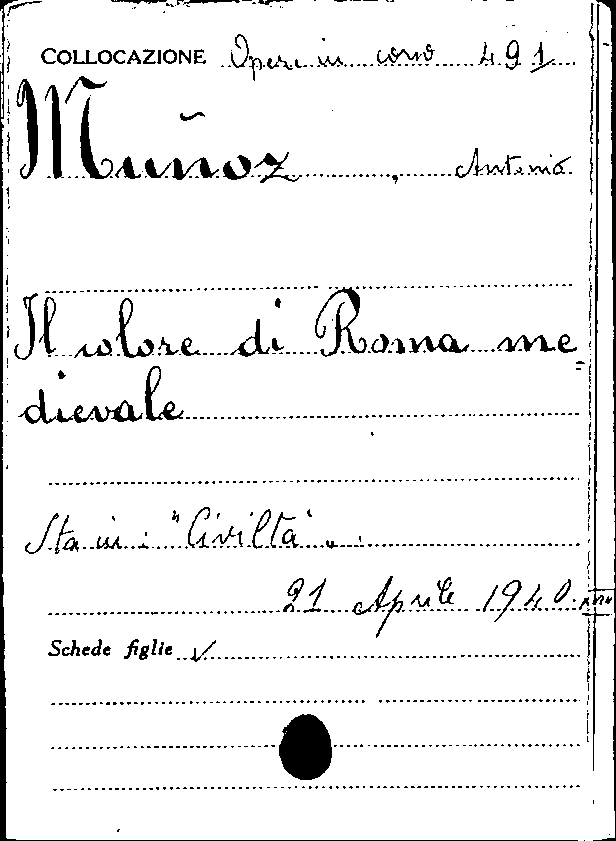 COLLOCAZIONE Opere in corso 491
Muñoz, Antonio
Il colore di Roma me=
dievale
Sta in: "Civiltà".
21 Aprile 1940.
Schede figlie ✓